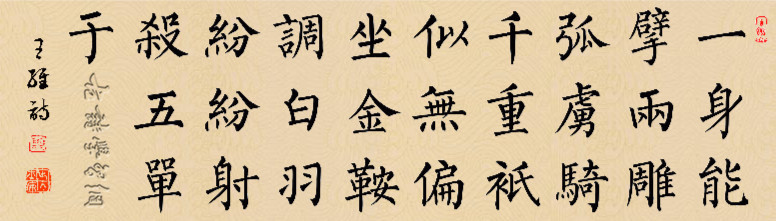 一身能
擘兩雕
弧虜騎
千重衹
似無偏
坐金鞍
調白羽
紛紛射
殺五單
于
王維詩